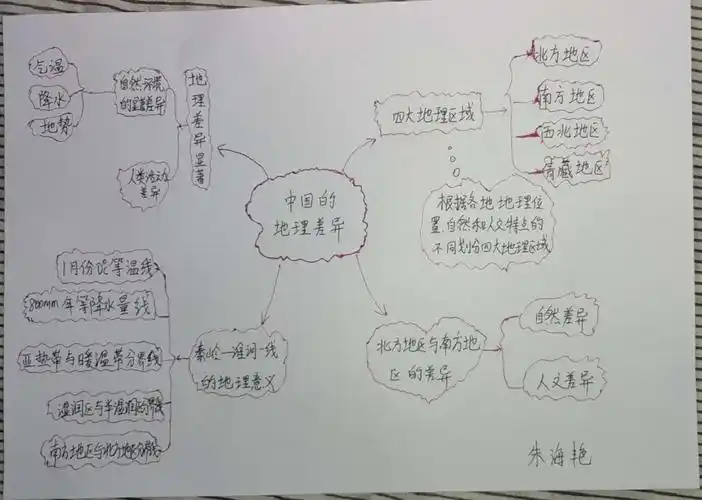 中国的
地理差异
地理差异显著
自然环境
的显著差异
气温
降水
地势
人类活动
差异
四大地理区域
北方地区
南方地区
西北地区
青藏地区
根据各地地理位
置、自然和人文特点的
不同划分四大地理区域
北方地区与南方地
区的差异
自然差异
人文差异
秦岭—淮河一线
的地理意义
1月份0℃等温线
800mm年等降水量线
亚热带与暖温带分界线
湿润区与半湿润区分界线
南方地区与北方地区分界线
朱海艳